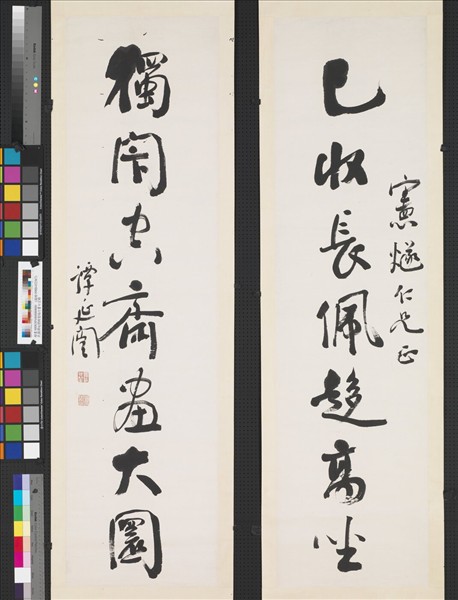 已收長佩趍高坐
憲燧仁兄正
獨閉空齋畫大圜
譚延闓